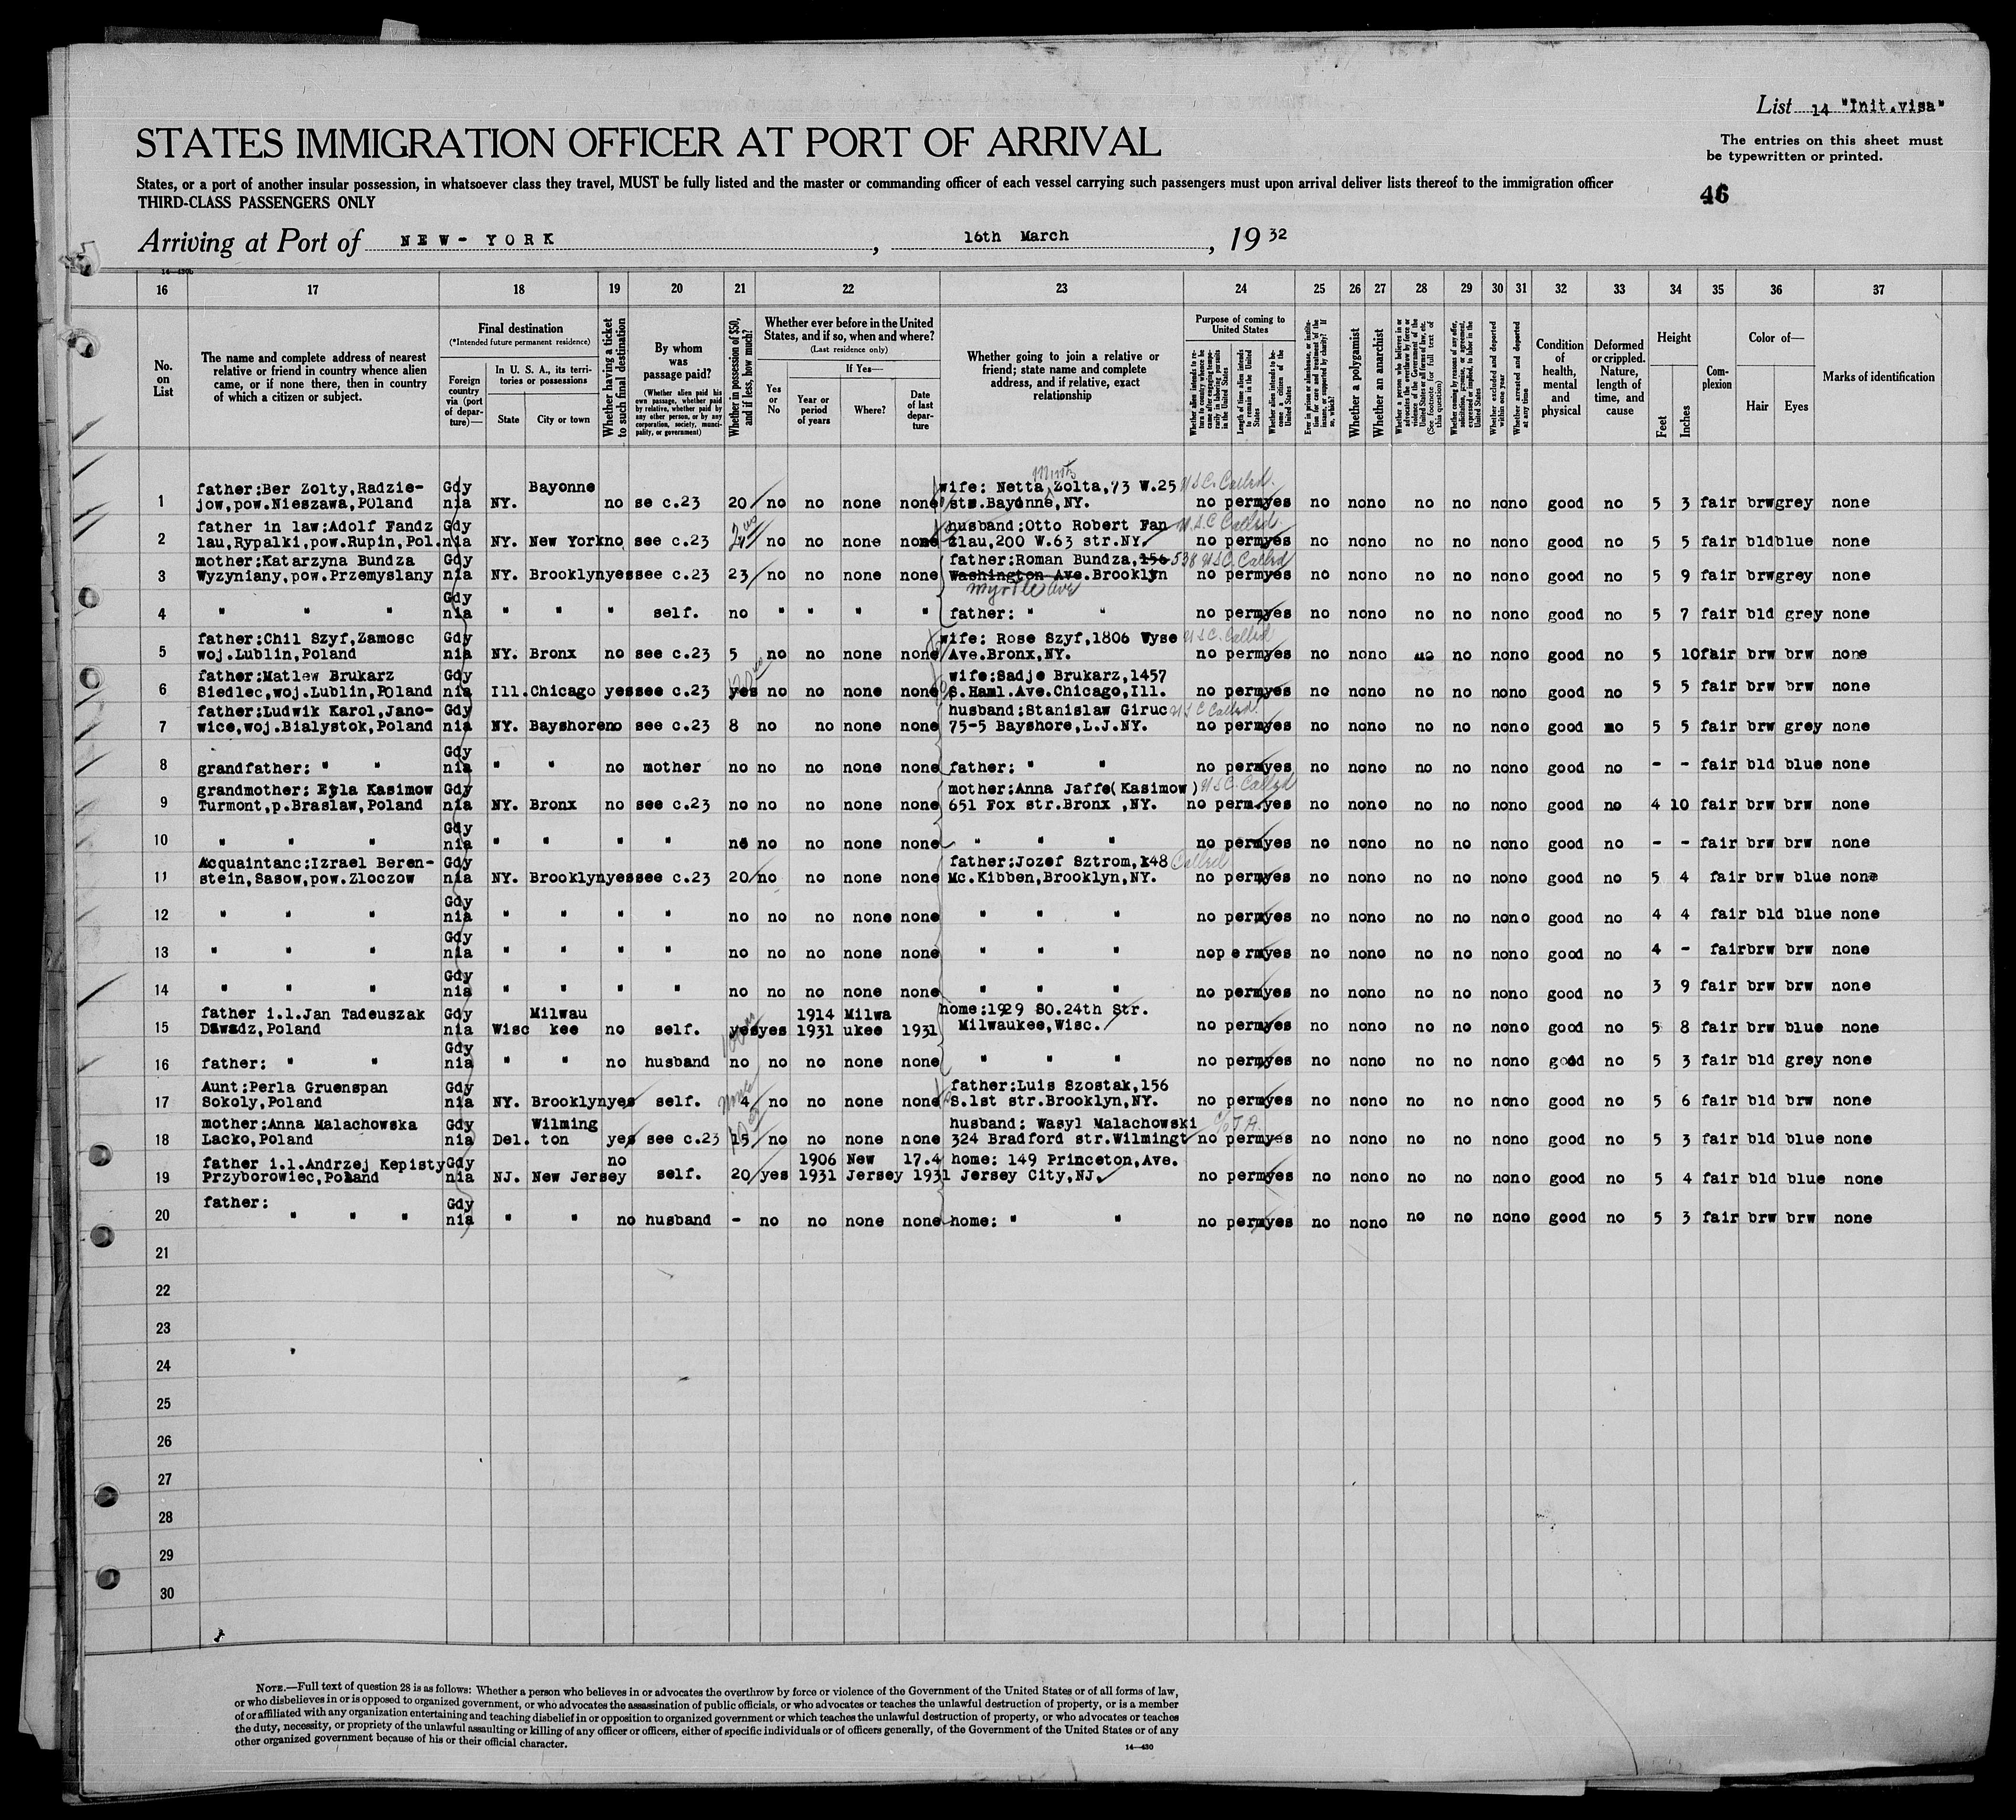 List 14 "Init.visa"
STATES IMMIGRATION OFFICER AT PORT OF ARRIVAL
The entries on this sheet must
be typewritten or printed.
States, or a port of another insular possession, in whatsoever class they travel, MUST be fully listed and the master or commanding officer of each vessel carrying such passengers must upon arrival deliver lists thereof to the immigration officer
THIRD-CLASS PASSENGERS ONLY
46
Arriving at Port of NEW-YORK, 16th March, 1932
14—430b
16 17 18 19 20 21 22 23 24 25 26 27 28 29 30 31 32 33 34 35 36 37
No. on List
The name and complete address of nearest relative or friend in country whence alien came, or if none there, then in country of which a citizen or subject.
Final destination
(*Intended future permanent residence)
Foreign country via (port of departure)—
In U. S. A., its territories or possessions
State
City or town
Whether having a ticket to such final destination
By whom was passage paid?
(Whether alien paid his own passage, whether paid by relative, whether paid by any other person, or by any corporation, society, municipality, or government)
Whether in possession of $50, and if less, how much?
Whether ever before in the United States, and if so, when and where?
(Last residence only)
Yes or No
If Yes—
Year or period of years
Where?
Date of last departure
Whether going to join a relative or friend; state name and complete address, and if relative, exact relationship
Purpose of coming to United States
Whether alien intends to return to country whence he came after engaging temporarily in laboring pursuits in the United States
Length of time alien intends to remain in the United States
Whether alien intends to become a citizen of the United States
Ever in prison or almshouse, or institution for care and treatment of the insane, or supported by charity? If so, which?
Whether a polygamist
Whether an anarchist
Whether a person who believes in or advocates the overthrow by force or violence of the Government of the United States or all forms of law, etc. (See footnote for full text of this question)
Whether coming by reason of any offer, solicitation, promise, or agreement, expressed or implied, to labor in the United States
Whether excluded and deported within one year
Whether arrested and deported at any time
Condition of health, mental and physical
Deformed or crippled. Nature, length of time, and cause
Height
Feet
Inches
Complexion
Color of—
Hair
Eyes
Marks of identification
father:Ber Zolty,Radzie- Gdy Bayonne wife: Netta Zolta,73 W.25 USC. Called.
1 jow,pow.Nieszawa,Poland nia NY. no se c.23 20 no no none none sts.Bayonne,NY. no perm yes no no no no no no no good no 5 3 fair brw grey none
father in law:Adolf Fandz Gdy husband:Otto Robert Fan U.S.C Called.
2 lau,Rypalki,pow.Rupin,Pol. nia NY. New York no see c.23 no no none none zlau,200 W.63 str.NY. no perm yes no no no no no no no good no 5 5 fair bld blue none
mother:Katarzyna Bundza Gdy father:Roman Bundza,156 538 USC. Called
3 Wyzyniany,pow.Przemyslany nia NY. Brooklyn yes see c.23 23 no no none none Washington Ave.Brooklyn no perm yes no no no no no no no good no 5 9 fair brw grey none
Myrtle Ave
Gdy
4 " " " nia " " " self. no " " " " father: " " no perm yes no no no no no no no good no 5 7 fair bld grey none
father:Chil Szyf,Zamosc Gdy wife: Rose Szyf,1806 Wyse USC. Called
5 woj.Lublin,Poland nia NY. Bronx no see c.23 5 no no none none Ave.Bronx,NY. no perm yes no no no no no no no good no 5 10 fair brw brw none
father:Matlew Brukarz Gdy wife:Sadje Brukarz,1457
6 Siedlec,woj.Lublin,Poland nia Ill. Chicago yes see c.23 yes no no none none S.Haml.Ave.Chicago,Ill. no perm yes no no no no no no no good no 5 5 fair brw brw none
father:Ludwik Karol,Jano- Gdy husband:Stanislaw Giruc USC Called.
7 wice,woj.Bialystok,Poland nia NY. Bayshore no see c.23 8 no no none none 75-5 Bayshore,L.J.NY. no perm yes no no no no no no no good no 5 5 fair brw grey none
Gdy
8 grandfather: " " nia " " no mother no no no none none father: " " no perm yes no no no no no no no good no - - fair bld blue none
grandmother: Eyla Kasimow Gdy mother:Anna Jaffe(Kasimow) USC. Called
9 Turmont,p.Braslaw,Poland nia NY. Bronx no see c.23 no no no none none 651 Fox str.Bronx ,NY. no perm.yes no no no no no no no good no 4 10 fair brw brw none
Gdy
10 " " " nia " " " " no no no none none " " " no perm yes no no no no no no no good no - - fair brw brw none
Acquaintanc:Izrael Beren- Gdy father:Jozef Sztrom,148 Called
11 stein,Sasow,pow.Zloczow nia NY. Brooklyn yes see c.23 20 no no none none Mc.Kibben,Brooklyn,NY. no perm yes no no no no no no no good no 5 4 fair brw blue none
Gdy
12 " " " nia " " " " no no no none none " " " no perm yes no no no no no no no good no 4 4 fair bld blue none
Gdy
13 " " " nia " " " " no no no none none " " " no perm yes no no no no no no no good no 4 - fair brw brw none
Gdy
14 " " " nia " " " " no no no none none " " " no perm yes no no no no no no no good no 3 9 fair brw brw none
father i.l.Jan Tadeuszak Gdy Milwau 1914 Milwa home:1929 SO.24th Str.
15 Dawadz,Poland nia Wisc kee no self. yes yes 1931 ukee 1931 Milwaukee,Wisc. no perm yes no no no no no no no good no 5 8 fair brw blue none
Gdy
16 father: " " nia " " no husband no no no none none " " " no perm yes no no no no no no no good no 5 3 fair bld grey none
Aunt:Perla Gruenspan Gdy father:Luis Szostak,156
17 Sokoly,Poland nia NY. Brooklyn yes self. 4 no no none none S.1st str.Brooklyn,NY. no perm yes no no no no no no no good no 5 6 fair bld brw none
mother:Anna Malachowska Gdy Wilming husband: Wasyl Malachowski
18 Lacko,Poland nia Del. ton yes see c.23 15 no no none none 324 Bradford str.Wilmingt no perm yes no no no no no no no good no 5 3 fair bld blue none
father i.l.Andrzej Kepisty Gdy no 1906 New 17.4 home: 149 Princeton,Ave.
19 Przyborowiec,Poland nia NJ. New Jersey self. 20 yes 1931 Jersey 1931 Jersey City,NJ. no perm yes no no no no no no no good no 5 4 fair bld blue none
father: Gdy
20 " " " nia " " no husband - no no none none home: " " no perm yes no no no no no no no good no 5 3 fair brw brw none
21
22
23
24
25
26
27
28
29
30
NOTE.—Full text of question 28 is as follows: Whether a person who believes in or advocates the overthrow by force or violence of the Government of the United States or of all forms of law,
or who disbelieves in or is opposed to organized government, or who advocates the assassination of public officials, or who advocates or teaches the unlawful destruction of property, or is a member
of or affiliated with any organization entertaining and teaching disbelief in or opposition to organized government or which teaches the unlawful destruction of property, or who advocates or teaches
the duty, necessity, or propriety of the unlawful assaulting or killing of any officer or officers, either of specific individuals or of officers generally, of the Government of the United States or of any
other organized government because of his or their official character.
14—430